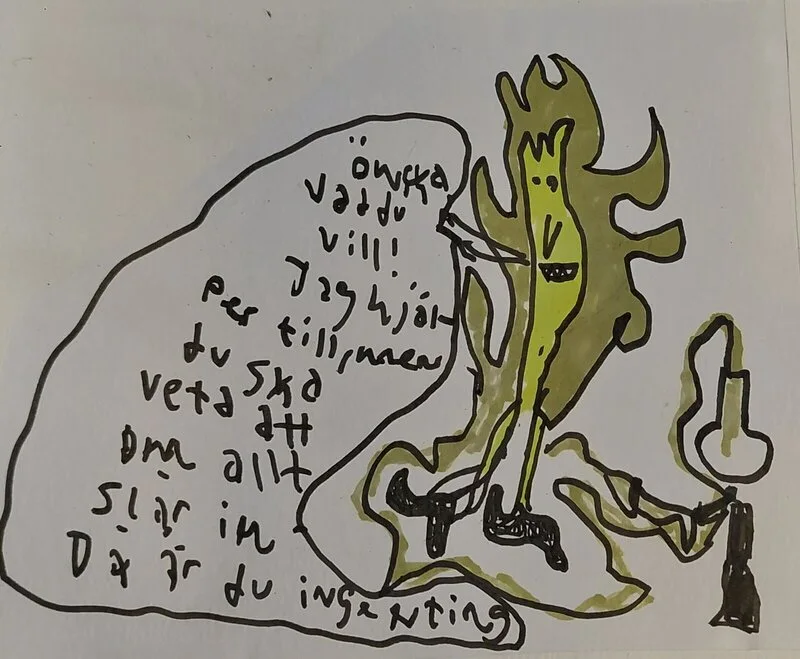 önska
vad du
vill!
Jag hjäl-
per till, men
du ska
veta att
om allt
slår in
Då är du ingenting